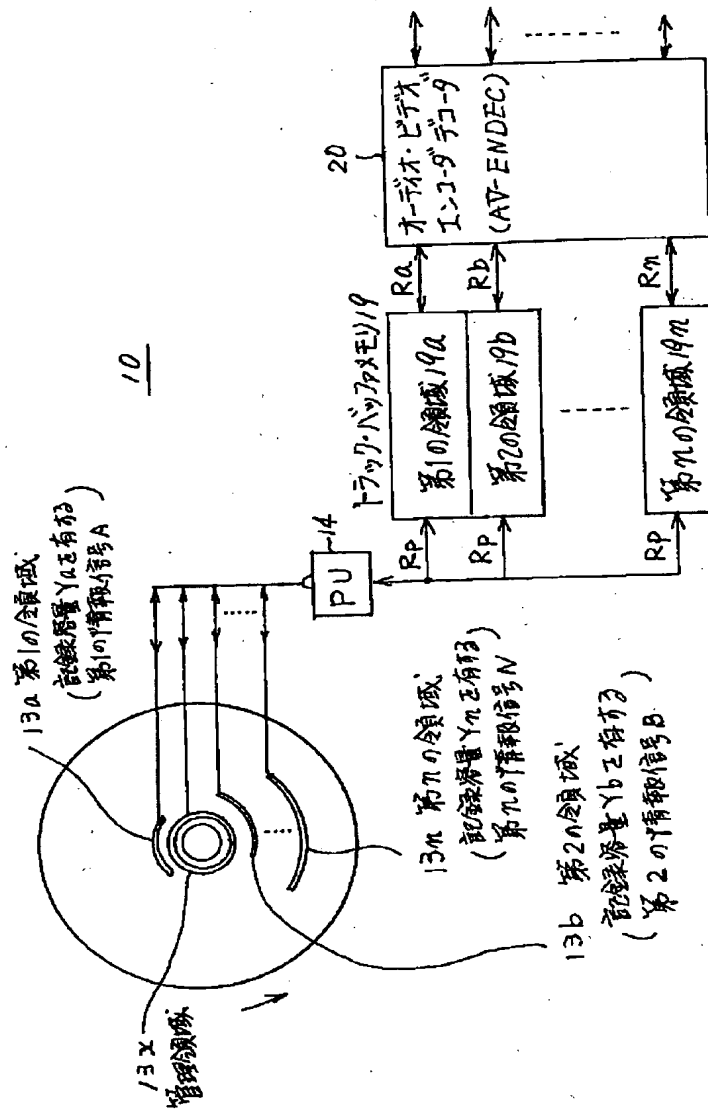 10
13a 第1の領域
記録容量Yaを有する
(第1の情報信号A)
13x
管理領域
13n 第nの領域
記録容量Ynを有する
(第nの情報信号N)
13b 第2の領域
記録容量Ybを有する
(第2の情報信号B)
14
PU
Rp
Rp
Rp
トラック・バッファメモリ19
第1の領域19a
第2の領域19b
第nの領域19n
Ra
Rb
Rn
20
オーディオ・ビデオ
エンコーダデコーダ
(AV-ENDEC)